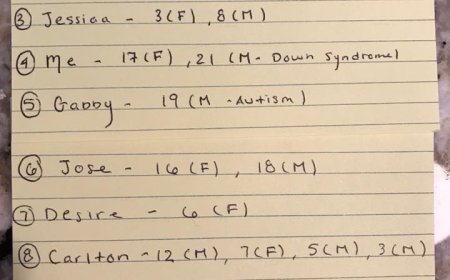 ③ Jessica - 3(F), 8(M)
④ Me - 17(F), 21 (M- Down Syndrome)
⑤ Gabby - 19 (M - Autism)
⑥ Jose - 16(F), 18(M)
⑦ Desire - 6 (F)
⑧ Carlton - 12(M), 7(F), 5(M), 3(M)